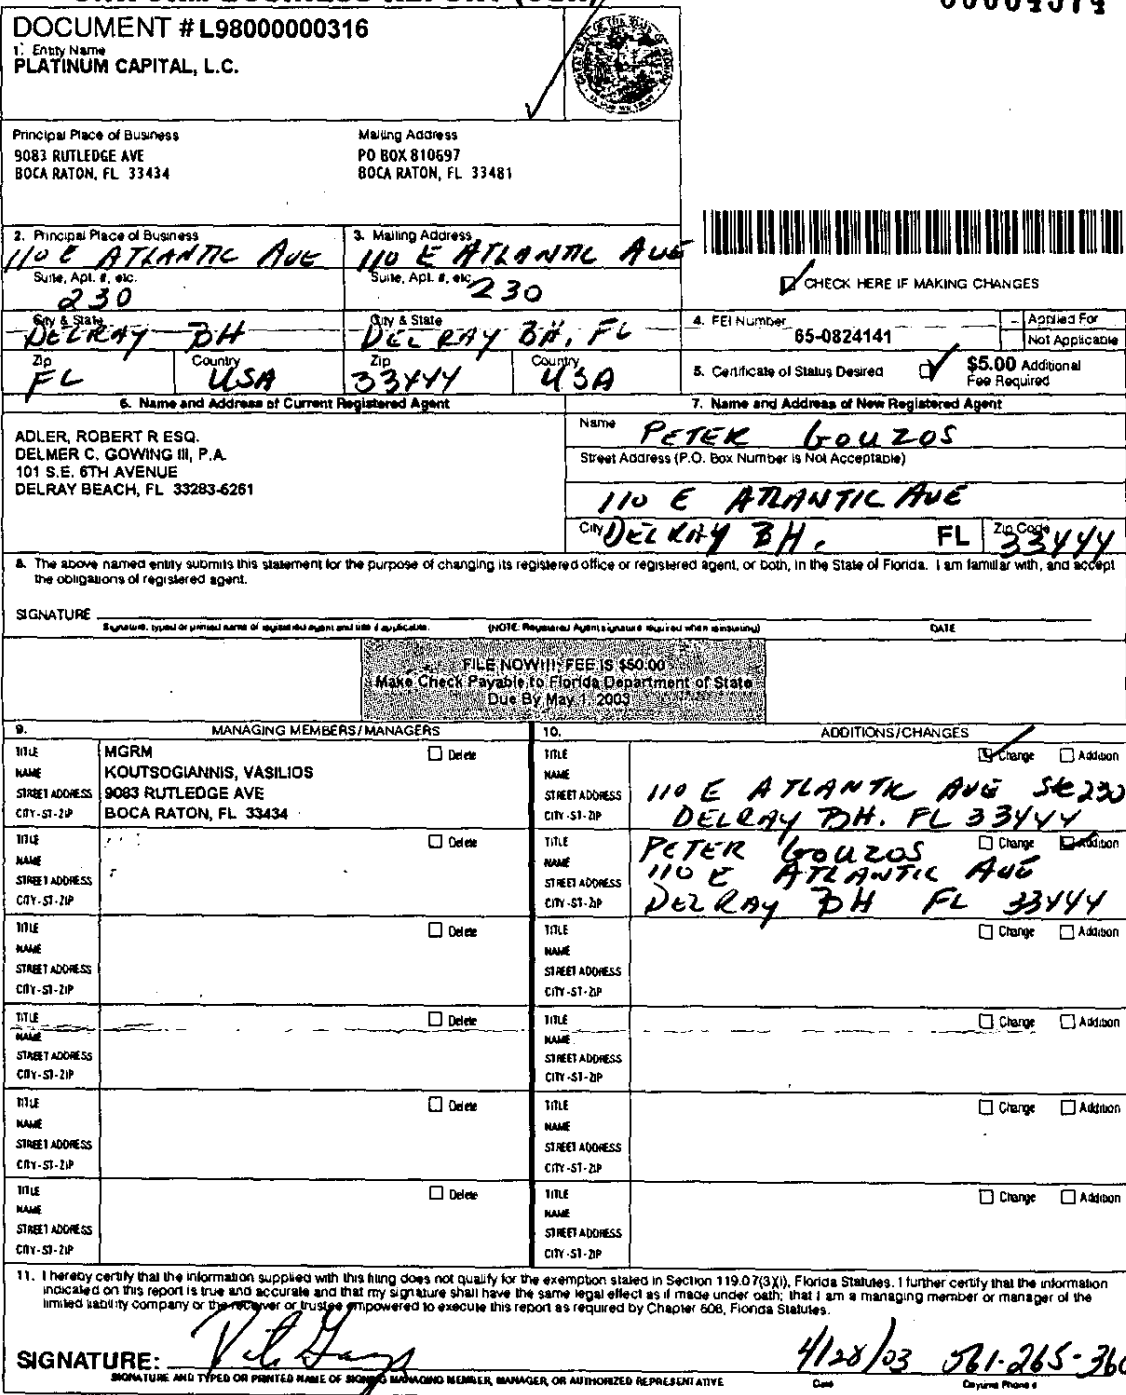 DOCUMENT # L98000000316
1. Entity Name
PLATINUM CAPITAL, L.C.
Principal Place of Business
9083 RUTLEDGE AVE
BOCA RATON, FL 33434
Mailing Address
PO BOX 810697
BOCA RATON, FL 33481
2. Principal Place of Business
110 E ATLANTIC AVE
Suite, Apt. #, etc.
230
City & State
DELRAY BH
Zip
FL
Country
USA
3. Mailing Address
110 E ATLANTIC AVE
Suite, Apt. #, etc.
230
City & State
DELRAY BH, FL
Zip
33444
Country
USA
CHECK HERE IF MAKING CHANGES
4. FEI Number
65-0824141
Applied For
Not Applicable
5. Certificate of Status Desired
$5.00 Additional
Fee Required
6. Name and Address of Current Registered Agent
ADLER, ROBERT R ESQ.
DELMER C. GOWING III, P.A.
101 S.E. 6TH AVENUE
DELRAY BEACH, FL 33283-5261
7. Name and Address of New Registered Agent
Name PETER GOUZOS
Street Address (P.O. Box Number is Not Acceptable)
110 E ATLANTIC AVE
City DELRAY BH. FL Zip Code 33444
8. The above named entity submits this statement for the purpose of changing its registered office or registered agent, or both, in the State of Florida. I am familiar with, and accept
the obligations of registered agent.
SIGNATURE
Signature, typed or printed name of registered agent and title if applicable. (NOTE: Registered Agent signature required when reinstating) DATE
FILE NOW!!! FEE IS $50.00
Make Check Payable to Florida Department of State
Due By May 1, 2003
9. MANAGING MEMBERS/MANAGERS
TITLE MGRM Delete
NAME KOUTSOGIANNIS, VASILIOS
STREET ADDRESS 9083 RUTLEDGE AVE
CITY-ST-ZIP BOCA RATON, FL 33434
TITLE Delete
NAME
STREET ADDRESS
CITY-ST-ZIP
TITLE Delete
NAME
STREET ADDRESS
CITY-ST-ZIP
TITLE Delete
NAME
STREET ADDRESS
CITY-ST-ZIP
TITLE Delete
NAME
STREET ADDRESS
CITY-ST-ZIP
TITLE Delete
NAME
STREET ADDRESS
CITY-ST-ZIP
10. ADDITIONS/CHANGES
TITLE Change Addition
NAME
STREET ADDRESS 110 E ATLANTIC AVE Ste 230
CITY-ST-ZIP DELRAY BH. FL 33444
TITLE PETER GOUZOS Change Addition
NAME
STREET ADDRESS 110 E ATLANTIC AVE
CITY-ST-ZIP DELRAY BH FL 33444
TITLE Change Addition
NAME
STREET ADDRESS
CITY-ST-ZIP
TITLE Change Addition
NAME
STREET ADDRESS
CITY-ST-ZIP
TITLE Change Addition
NAME
STREET ADDRESS
CITY-ST-ZIP
TITLE Change Addition
NAME
STREET ADDRESS
CITY-ST-ZIP
11. I hereby certify that the information supplied with this filing does not qualify for the exemption stated in Section 119.07(3)(i), Florida Statutes. I further certify that the information
indicated on this report is true and accurate and that my signature shall have the same legal effect as if made under oath; that I am a managing member or manager of the
limited liability company or the receiver or trustee empowered to execute this report as required by Chapter 608, Florida Statutes.
SIGNATURE: 4/28/03 561-265-360
SIGNATURE AND TYPED OR PRINTED NAME OF SIGNING MANAGING MEMBER, MANAGER, OR AUTHORIZED REPRESENTATIVE Date Daytime Phone #